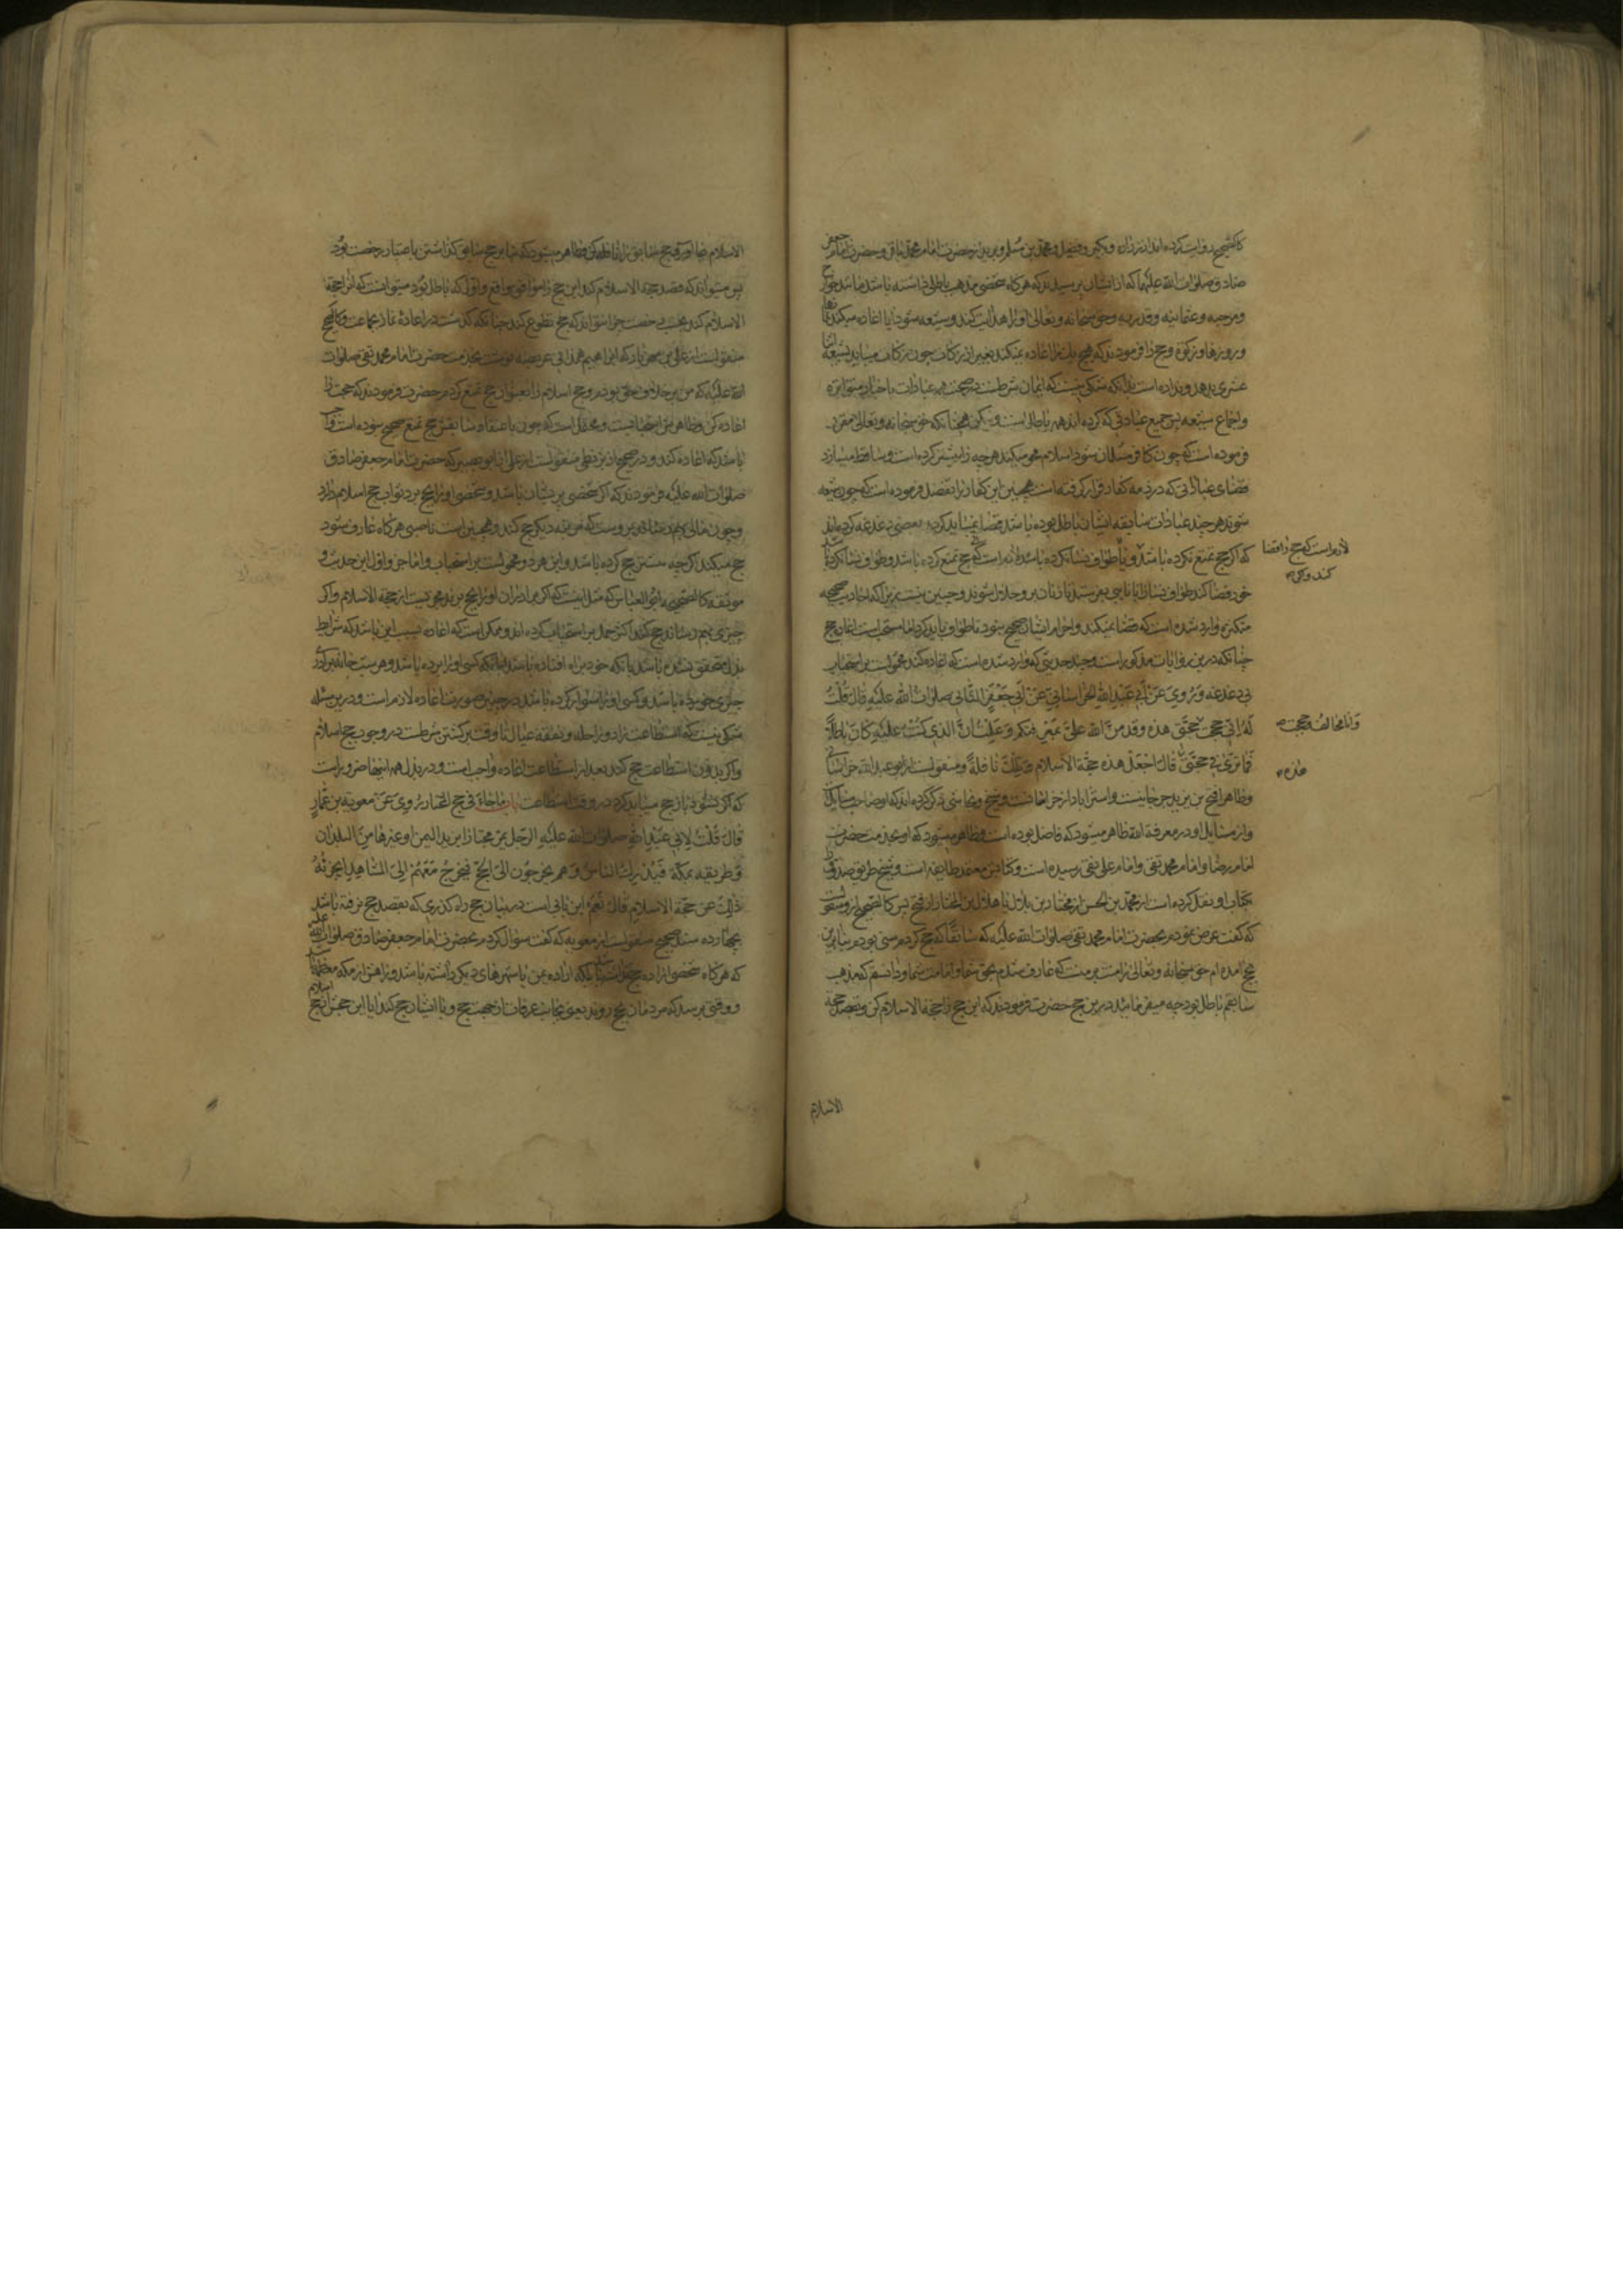 کالصحیح روایت کرده‌اند از زراره و بکیر و فضیل و محمد بن مسلم و برید از حضرت امام محمد باقر و حضرت امام جعفر
صادق صلوات الله علیهما که از ایشان پرسیدند که هرگاه شخصی مذهب باطلی داشته باشد مانند خوارج
و مرجئه و عثمانیه و قدریه و حق سبحانه و تعالی او را هدایت کند و شیعه شود آیا اعاده میکند نمازها
و روزها و زکوة و حج را فرمودند که هیچ یک را اعاده نمیکند بغیر از زکات چون زکات میباید بشیعه اثنا
عشری بدهد و نداده است بدانکه شکی نیست که ایمان شرطست در صحت عبادات باخبار متواتره
و اجماع شیعه پس جمیع عباداتی که کرده‌اند همه باطل است ولیکن همچنانکه حق سبحانه و تعالی مقرر
فرموده است که چون کافر مسلمان شود اسلام محو میکند هرچه را پیشتر کرده است و ساقط میسازد
قضای عباداتی که در ذمه کفار قرار گرفته است همچنین این کفار را تفضل فرموده است که چون شیعه
شوند هرچند عبادات سابقه ایشان باطل بوده باشد قضا نمیباید کرد و بعضی دغدغه کرده‌اند
که اگر حج تمتع نکرده باشد و یا طواف نسا نکرده باشد لازم است که حج تمتع کرده باشد و طواف نسا نکرده باشد
لازم است که حج را قضا
کند و اگر
خود قضا کند طواف نسا را یا نایبی بفرستد تا زنان برو حلال شوند و چنین نیست زیرا که احادیث صحیحه
متکثره وارد شده است که قضا نمیکند و احرام ایشان صحیح نبود تا طواف باید کرد اما مستحب است اعاده حج
چنانکه درین روایات مذکور است و چند حدیثی که وارد شده است که اعاده کند محمولست بر استحباب
بی دغدغه وَ رُوِيَ عَنْ أَبِي عَبْدِ اللهِ الخُراسانِيِّ عَنْ أَبِي جَعْفَرٍ الثَّانِي صلوات الله علیه قال قُلْتُ
لَهُ إِنِّي حججت حجَّتي هذه وقد مَنَّ اللهُ عَلَيَّ بمعرفتكم وَ عَلِمْتُ أَنَّ الذي كُنْتُ عليه كانَ باطلاً
وَ أنا مخالف و حججت
فَما تَرَى في حَجَّتي قال اجْعَلْ هذه حَجَّة الاسلام وَ تِلْكَ نافِلَةً و منقولست از ابو عبدالله خراسانی
هذه
و ظاهرا فتح بن یزید جرجانیست و استراباد از خراسانست و شیخ و نجاشی ذکر کرده‌اند که او صاحب مسایل
و از مسایل او در معرفة الله ظاهر میشود که فاضل بوده است و ظاهر میشود که او بخدمت حضرت
امام رضا و امام محمد تقی و امام علی نقی رسیده است و کتابش معتمد طایفه است و شیخ طریق صدوق
بکتاب او نقل کرده است از محمد بن الحسن از مختار بن بلال یا هلال بن المختار از فتح پس کالصحیح از و منقولست
که گفت عرض نمودم بحضرت امام محمد تقی صلوات الله علیه که سابقا که حج کردم سنی بودم بنابرین
بحج آمده‌ام حق سبحانه و تعالی را منت بر منست که عارف شدم بحق شما و امامت شما و دانستم که مذهب
سابقم باطل بود چه میفرمائید درین حج حضرت فرمودند که این حج را حجة الاسلام کن و بقصد حجة
الاسلام
الاسلام بجا آور و حج سابق را نافله کن و ظاهر میشود که بنا بر حج سابق گذاشتن باعتبار رخصت بود
پس میتواند که قصد حجة الاسلام کند این حج را موافق واقع و اول که باطل بود میتوانست که آنرا حجة
الاسلام کند بحسب رخصت چرا نتواند که حج تطوع کند چنانکه گذشت در اعادهٔ نماز بجماعت و کالصحیح
منقولست از علی بن مهزیار که ابراهیم همدانی عریضه نوشت بخدمت حضرت امام محمد تقی صلوات
الله علیه که من بر خلاف حق بودم و حج اسلام را بعنوان حج تمتع کردم حضرت فرمودند که حجت را
اعاده کن و ظاهرش استحبابست و محتمل است که چون باعتقاد سابقش حج تمتع صحیح نبوده است واجب
باشد که اعاده کند و در صحیح از بزنطی منقولست از علی از ابو بصیر که حضرت امام جعفر صادق
صلوات الله علیه فرمودند که اگر شخصی پریشان باشد و شخصی او را بحج برد ثواب حج اسلام دارد
و چون مالی بهم رساند برو است که مرتبه دیگر حج کند و همچنین است ناصبی هرگاه عارف شود
حج میکند اگرچه پیشتر حج کرده باشد و این هر دو محمولست بر استحباب و اما جزو اول این حدیث و
موثقه کالصحیحه ابوالعباس که مثل اینست که اگر برادران او را بحج برند مجزیست از حجة الاسلام و اگر
چیزی بهم رساند حج کند اکثر حمل بر استحباب کرده‌اند و ممکن است که اعاده بسبب این باشد که شرایط
بذل متحقق نشده باشد یا آنکه خود براه افتاده باشد یا آنکه کسی او را برده باشد و هر شب خانه برادر
چیزی خورده باشد و کسی او را سوار کرده باشد در چنین صورت اعاده لازم است و درین مسئله
شکی نیست که استطاعت زاد و راحله و نفقه عیال تا وقت برگشتن شرطست در وجوب حج اسلام
و اگر بدون استطاعت حج کند بعد از استطاعت اعاده واجب است و در بذل همه اینها ضرور است
که اگر نشود باز حج میباید کرد در وقت استطاعت باب ما جاء في حج المجتاز رُوِيَ عَنْ معوية بن عَمَّارٍ
قالَ قُلْتُ لِأبي عَبْدِ اللهِ صلوات الله عليه الرَّجُل يَمُرُّ مجتازا يريد اليَمَن او غيرها مِنَ البلدان
وَ طريقه بِمَكَّة فَيُدْرِكُ النَّاسَ وَ هُمْ يَخْرُجُونَ الَى الحَجِّ فَيَخْرُجُ مَعَهُمْ إلَى المَشاهِدِ أيُجْزِئُهُ
ذلِكَ عن حَجَّة الاسلام قالَ نَعَمْ این بابی است در بیان حج راه گذری که بقصد حج نرفته باشد
بچهارده سند صحیح منقولست از معویه که گفت سؤال کردم بحضرت امام جعفر صادق صلوات الله علیه
که هرگاه شخصی اراده حج نداشته باشد بلکه اراده یمن یا شهرهای دیگر داشته باشد و راهش از مکه معظمه باشد
و وقتی برسد که مردمان بحج روند یعنی بجانب عرفات از جهت حج و با ایشان حج کند آیا این حجش از حج اسلام